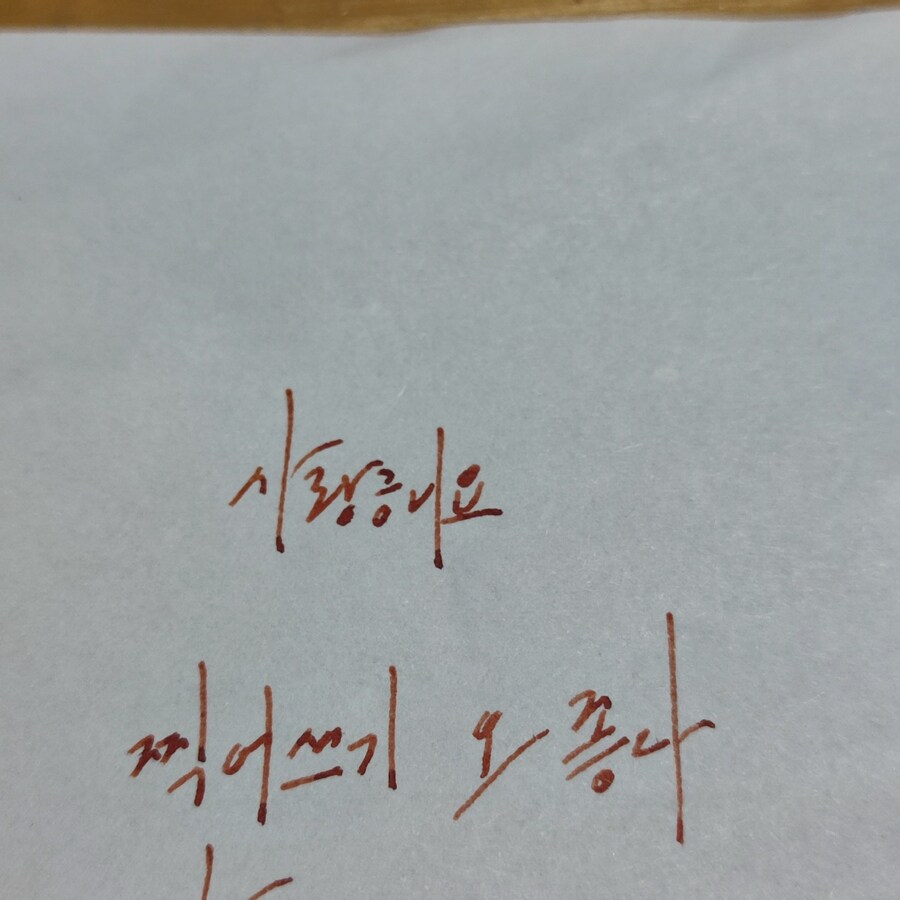 사랑해요
찍어쓰기 오 좋다